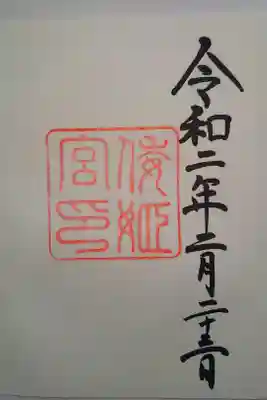 令和二年二月二十三日
倭姫宮印